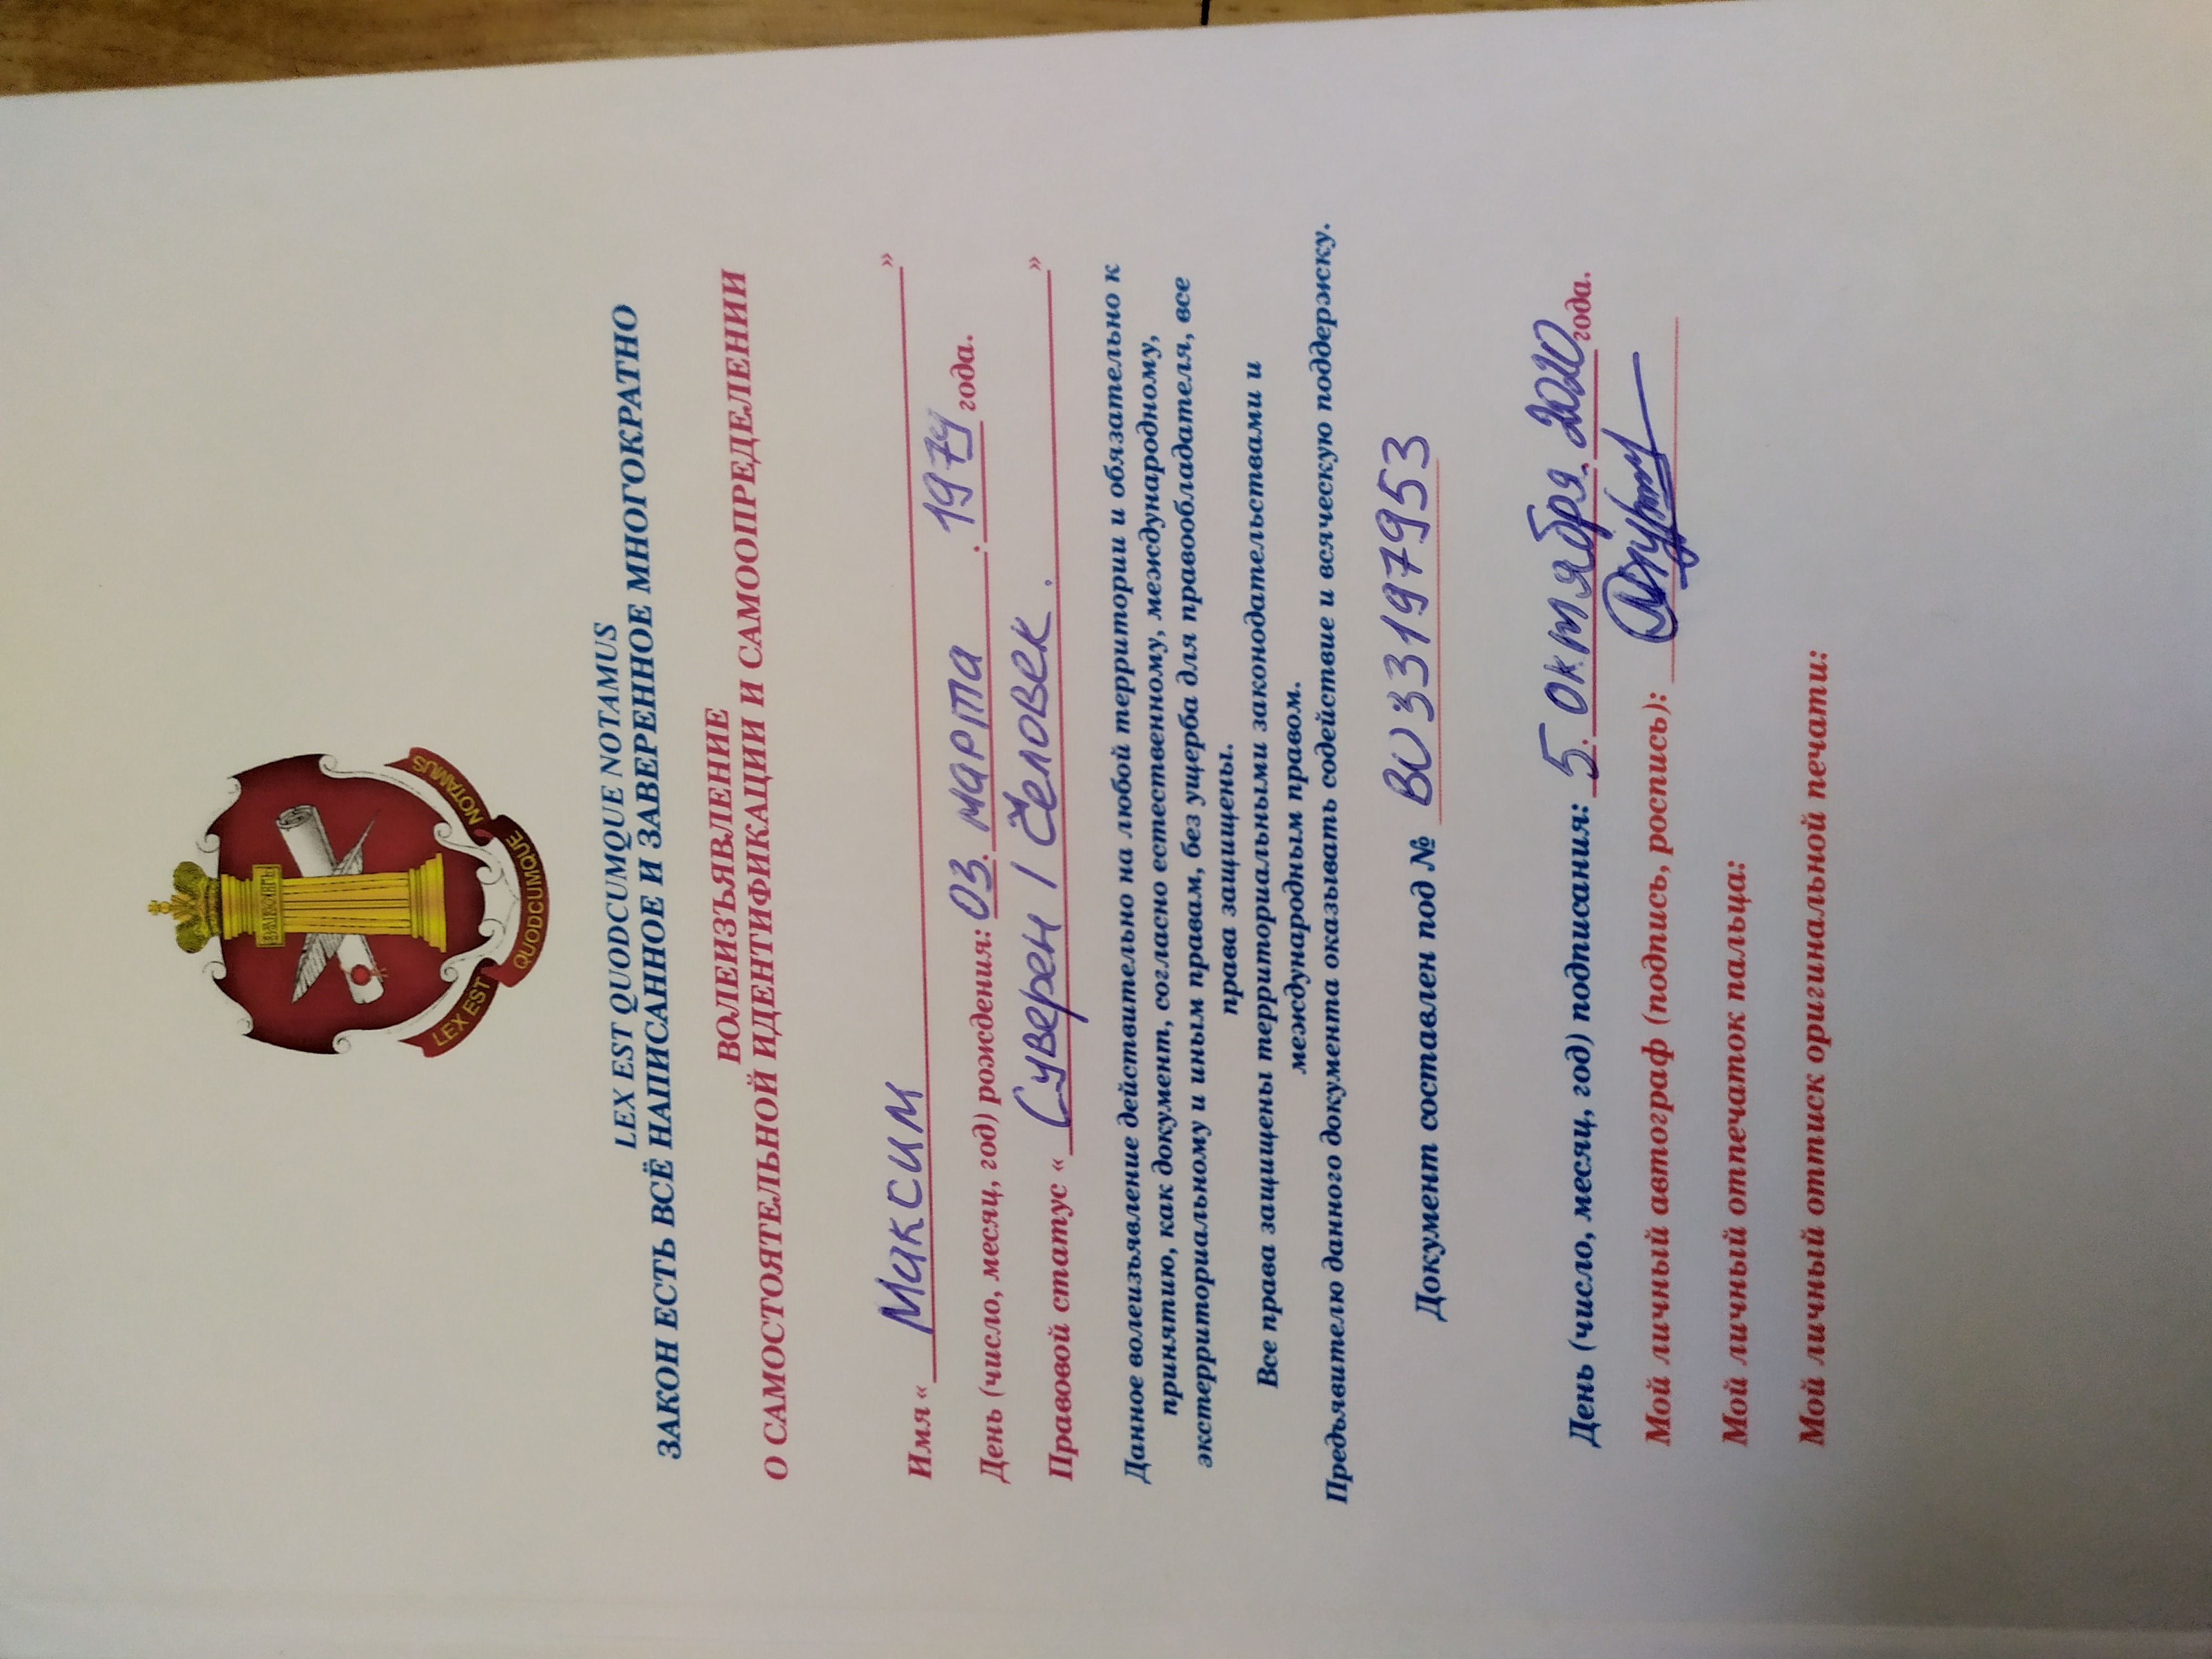 ЗАКОНЪ
LEX EST QUODCUMQUE NOTAMUS
LEX EST QUODCUMQUE NOTAMUS
ЗАКОН ЕСТЬ ВСЁ НАПИСАННОЕ И ЗАВЕРЕННОЕ МНОГОКРАТНО
ВОЛЕИЗЪЯВЛЕНИЕ
О САМОСТОЯТЕЛЬНОЙ ИДЕНТИФИКАЦИИ И САМООПРЕДЕЛЕНИИ
Имя « Максим »
День (число, месяц, год) рождения: 03. марта . 1979 года.
Правовой статус « Суверен / Человек. »
Данное волеизъявление действительно на любой территории и обязательно к
принятию, как документ, согласно естественному, международному,
экстерриториальному и иным правам, без ущерба для правообладателя, все
права защищены.
Все права защищены территориальными законодательствами и
международным правом.
Предъявителю данного документа оказывать содействие и всяческую поддержку.
Документ составлен под № ВU33197953
День (число, месяц, год) подписания: 5. октября. 2020 года.
Мой личный автограф (подпись, роспись):
Мой личный отпечаток пальца:
Мой личный оттиск оригинальной печати: